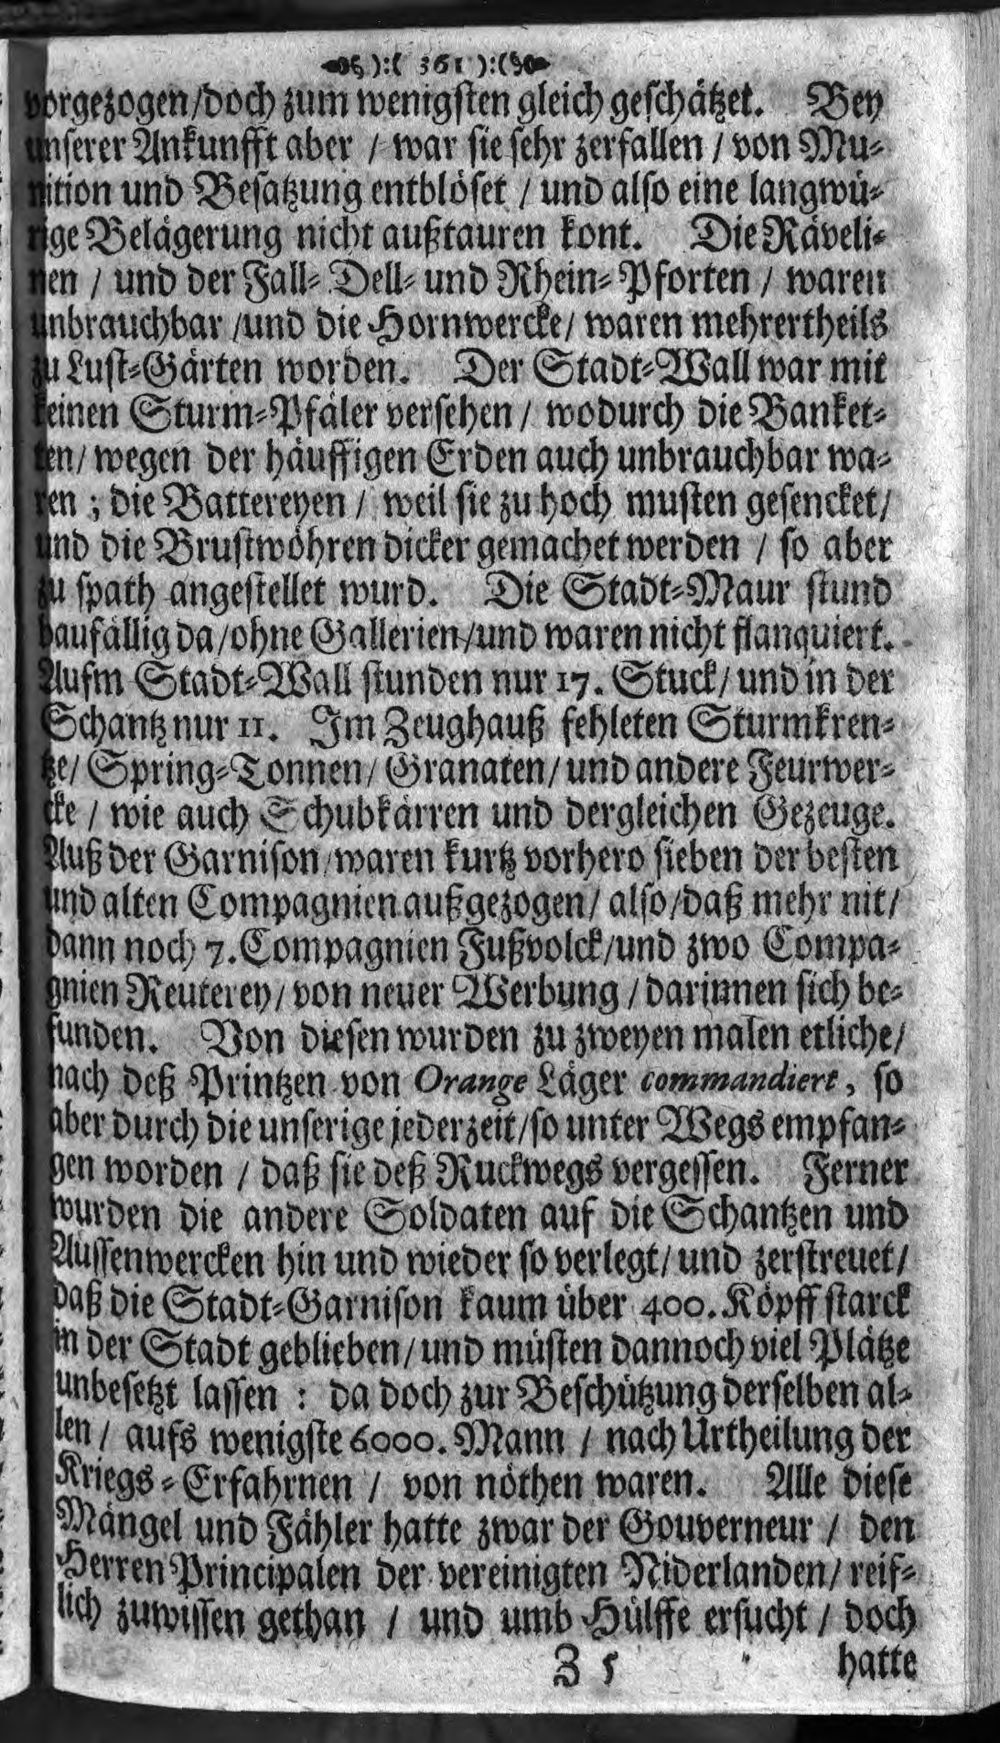 ):( 361 ):(
vorgezogen/doch zum wenigsten gleich geschätzet. Bey
unserer Ankunfft aber / war sie sehr zerfallen / von Mu-
nition und Besatzung entblöset / und also eine langwü-
rige Belägerung nicht außtauren kont. Die Räveli-
nen / und der Fall- Dell- und Rhein-Pforten / waren
unbrauchbar /und die Hornwercke/ waren mehrertheils
zu Lust-Gärten worden. Der Stadt-Wall war mit
keinen Sturm-Pfäler versehen / wodurch die Banket-
ten/ wegen der häuffigen Erden auch unbrauchbar wa-
ren ; die Battereyen / weil sie zu hoch musten gesencket/
und die Brustwöhren dicker gemachet werden / so aber
zu spath angestellet wurd. Die Stadt-Maur stund
baufällig da/ohne Gallerien/und waren nicht flanquiert.
Aufm Stadt-Wall stunden nur 17. Stuck/ und in der
Schantz nur 11. Im Zeughauß fehleten Sturmkren-
tze/ Spring-Tonnen/ Granaten/ und andere Feurwer-
cke / wie auch Schubkärren und dergleichen Gezeuge.
Auß der Garnison/waren kurtz vorhero sieben der besten
und alten Compagnien außgezogen/ also/daß mehr nit/
dann noch 7. Compagnien Fußvolck/und zwo Compa-
gnien Reuterey/ von neuer Werbung / darinnen sich be-
funden. Von diesen wurden zu zweyen malen etliche/
nach deß Printzen von Orange Läger commandiert, so
aber durch die unserige jederzeit/so unter Wegs empfan-
gen worden / daß sie deß Ruckwegs vergessen. Ferner
wurden die andere Soldaten auf die Schantzen und
Aussenwercken hin und wieder so verlegt/ und zerstreuet/
daß die Stadt-Garnison kaum über 400. Köpff starck
in der Stadt geblieben/ und müsten dannoch viel Plätze
unbesetzt lassen : da doch zur Beschützung derselben al-
len / aufs wenigste 6000. Mann / nach Urtheilung der
Kriegs-Erfahrnen / von nöthen waren. Alle diese
Mängel und Fähler hatte zwar der Gouverneur / den
Herren Principalen der vereinigten Niderlanden/ reif-
lich zuwissen gethan / und umb Hülffe ersucht / doch
Z 5 hatte